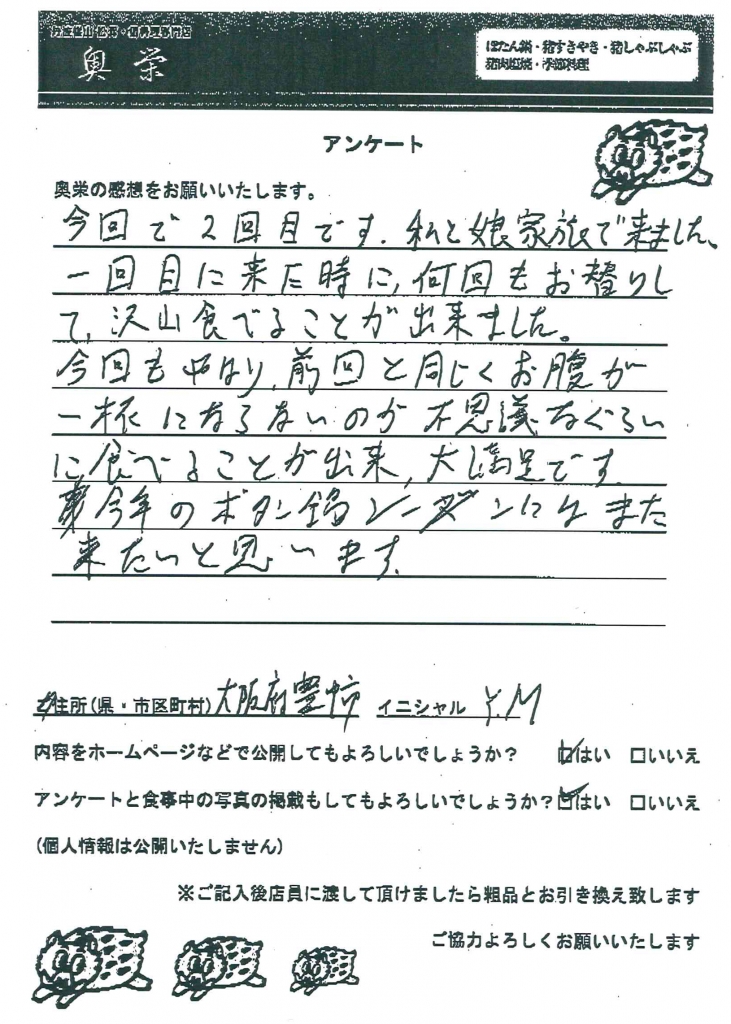 奥栄
ぼたん鍋・猪すきやき・猪しゃぶしゃぶ
猪肉塩焼・季節料理
アンケート
奥栄の感想をお願いいたします。
今回で2回目です.私と娘家族で来ました、
一回目に来た時に,何回もお替りし
て,沢山食べることが出来ました。
今回もやはり,前回と同じくお腹が
一杯にならないのか不思議なぐらい
に,食べることが出来,大満足です.
今年のボタン鍋シーズンにはまた
来たいと思います.
ご住所(県・市区町村)大阪府豊中市 イニシャル Y.M
内容をホームページなどで公開してもよろしいでしょうか? ☑はい □いいえ
アンケートと食事中の写真の掲載もしてもよろしいでしょうか?☑はい □いいえ
(個人情報は公開いたしません)
※ご記入後店員に渡して頂けましたら粗品とお引き換え致します
ご協力よろしくお願いいたします